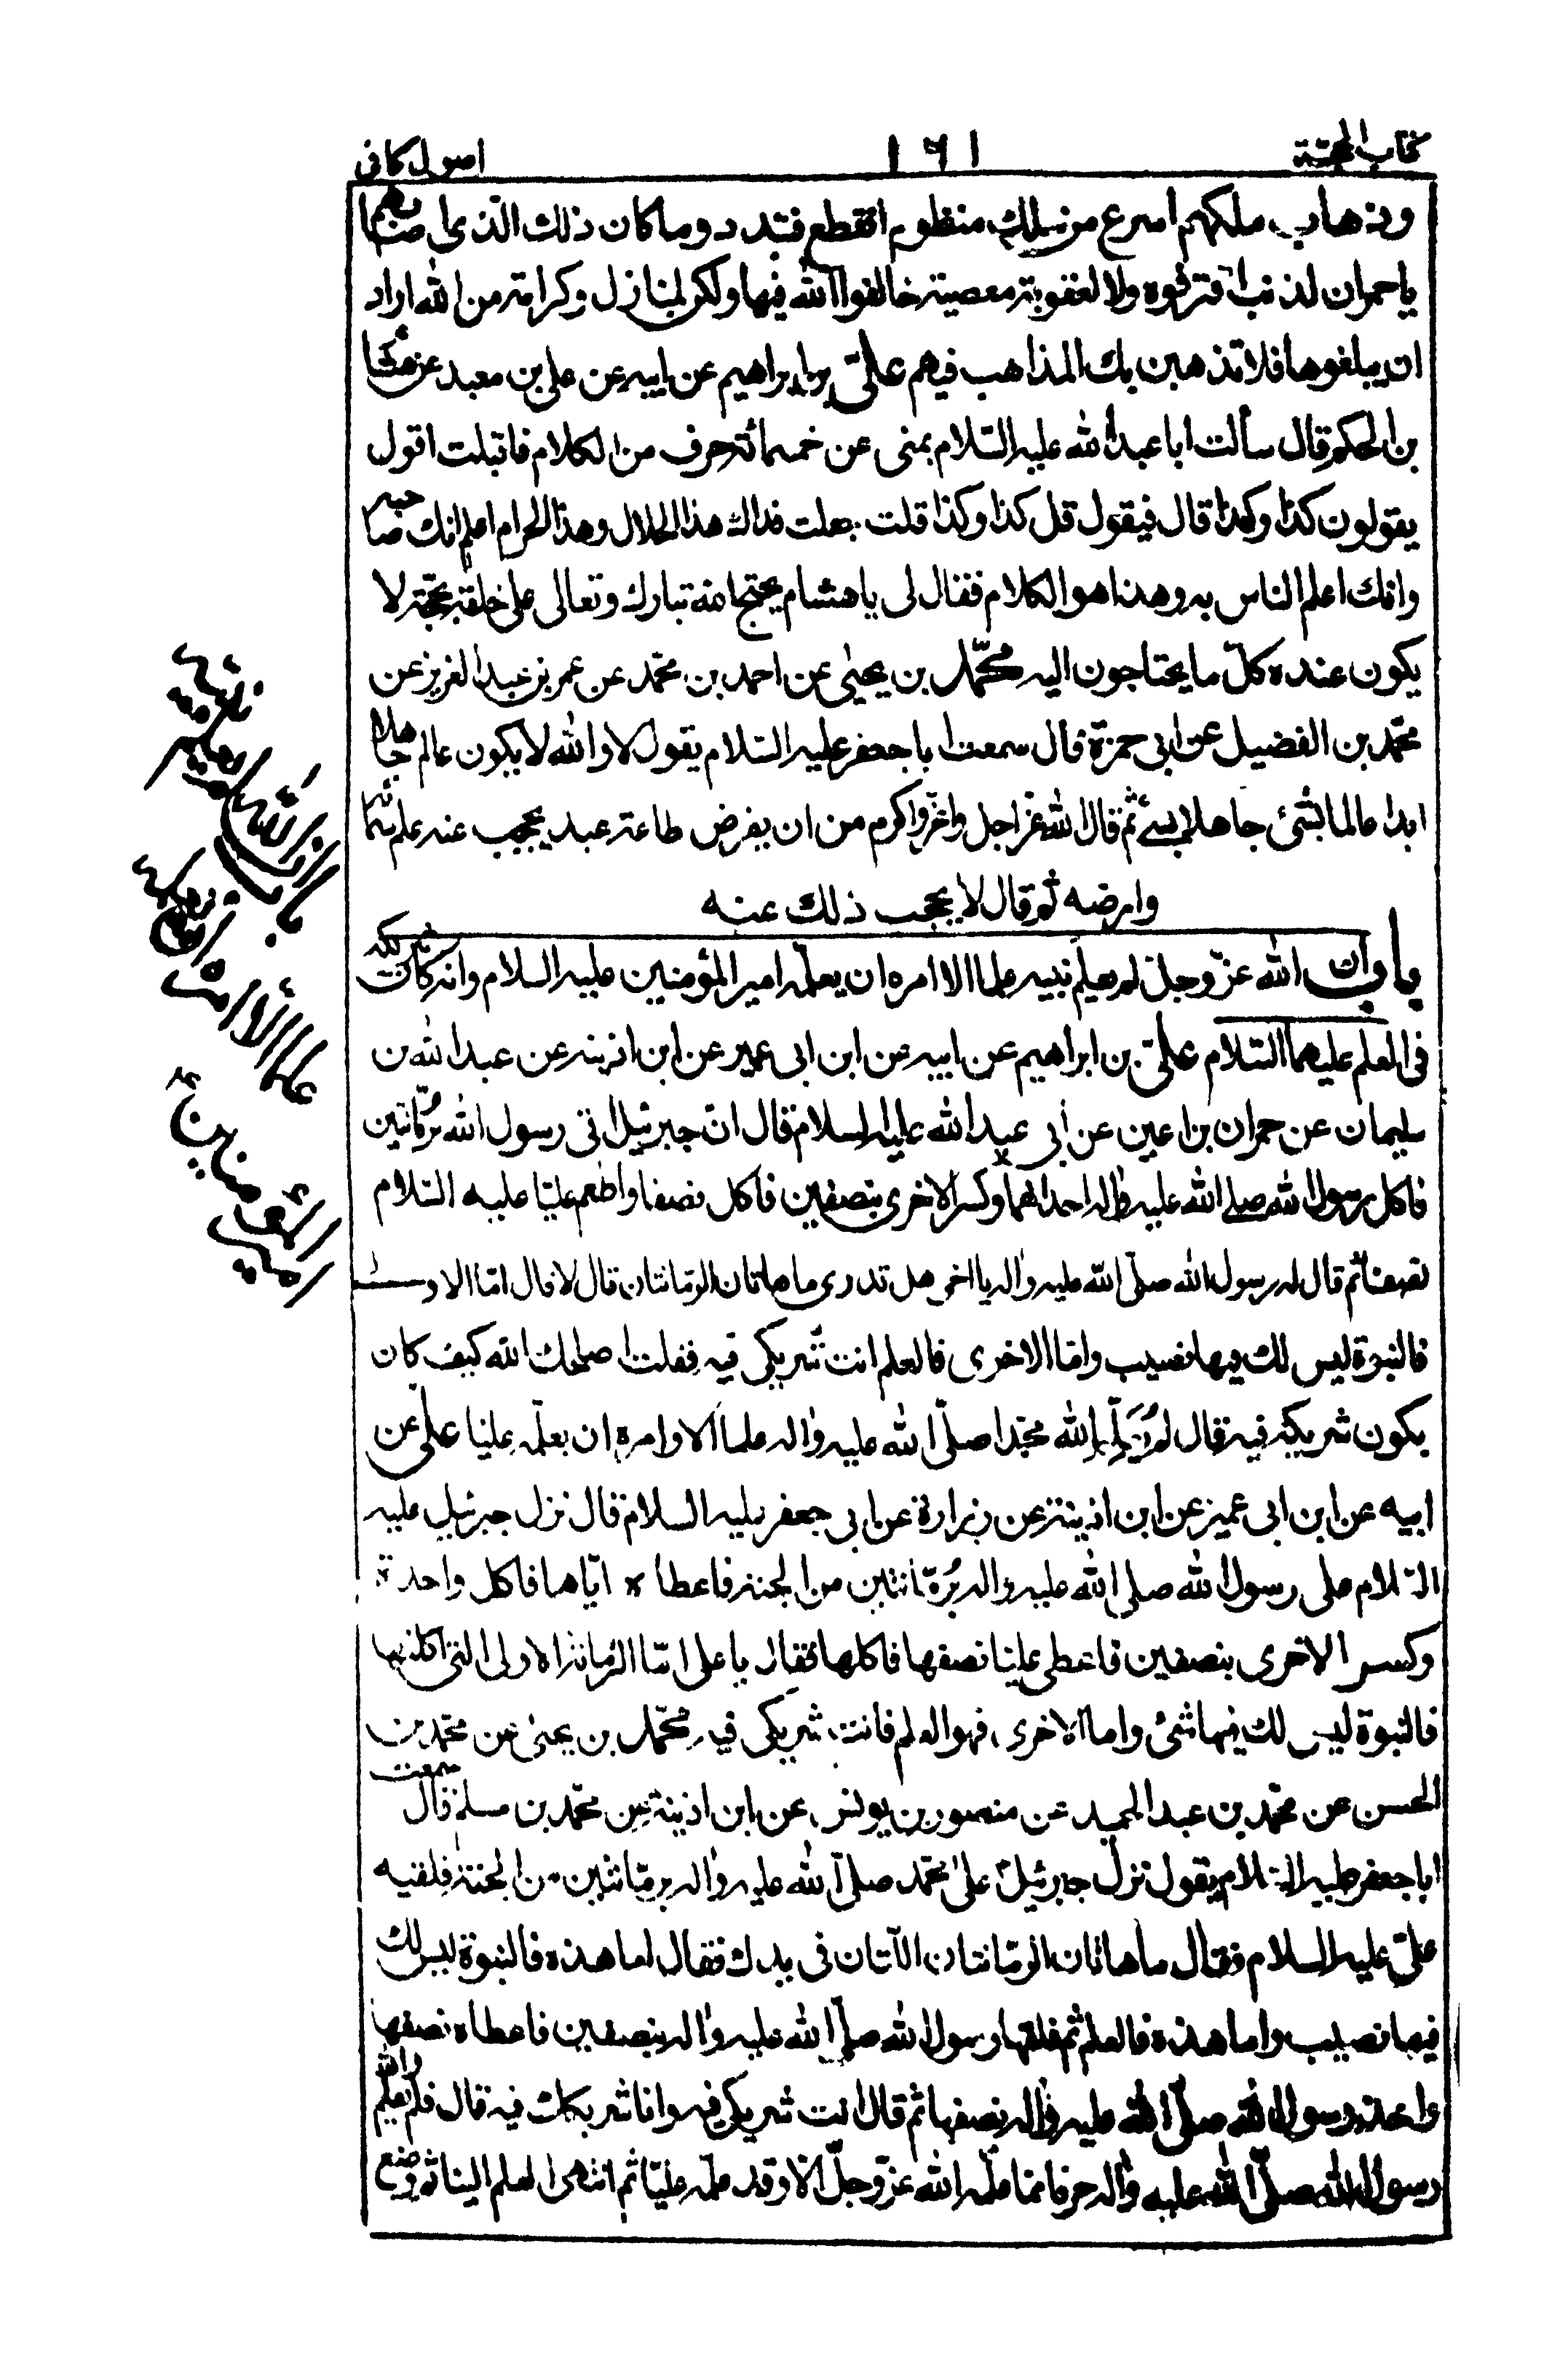 كتاب الحجة
١٦١
اصول كافى
وذهاب ملكهم اسرع من سلك منظوم انقطع فتبدد وما كان ذلك الذى اصابهم
يا حمران لذنب اقترفوه ولا لعقوبة معصية خالفوا الله فيها ولكن لمنازل وكرامة من الله اراد
ان يبلغوها فلا تذهبن بك المذاهب فيهم علىّ بن ابراهيم عن ابيه عن على بن معبد عن هشام
بن الحكم قال سألت ابا عبد الله عليه السّلام بمنى عن خمسمائة حرف من الكلام فاقبلت اقول
يقولون كذا وكذا قال فيقول قل كذا وكذا قلت جعلت فداك هذا الحلال وهذا الحرام اعلم انك صاحبه
وانك اعلم الناس به وهذا هو الكلام فقال لى يا هشام يحتج الله تبارك وتعالى على خلقه بحجّة لا
يكون عنده كلّ ما يحتاجون اليه محمّد بن يحيى عن احمد بن محمّد عن عمر بن عبد العزيز عن
محمّد بن الفضيل عن ابى حمزة قال سمعت ابا جعفر عليه السّلام يقول لا والله لا يكون عالم جاهلا
ابدا عالما بشئ جاهلا بشئ ثم قال الله عزّ اجل واعزّ واكرم من ان يفرض طاعة عبد يحجب عنه علم سمائه
وارضه ثم قال لا يحجب ذلك عنه
باب ان الله عزّ وجلّ لم يعلم نبيه علما الا امره ان يعلّمه امير المؤمنين عليه السلام وانه كان شريكه
فى العلم عليهما السّلام علىّ بن ابراهيم عن ابيه عن ابن ابى عمير عن ابن اذينه عن عبد الله بن
سليمان عن حمران بن اعين عن أبى عبد الله عليه السلام قال انّ جبرئيل اتى رسول الله برُمّانتين
فاكل رسول الله صلى الله عليه واله احداهما وكسر الاخرى بنصفين فاكل نصفا واطعم عليّا عليه السّلام
نصفا ثم قال له رسول الله صلّى الله عليه واله يا اخى هل تدرى ما هاتان الرمّانتان قال لا قال امّا الاولى
فالنبوّة ليس لك فيها نصيب وامّا الاخرى فالعلم انت شريكى فيه فقلت اصلحك الله كيف كان
يكون شريكه فيه قال لم يعلّم الله محمّدا صلّى الله عليه واله علما الا وامره ان يعلّمه عليّا علىّ عن
ابيه عن ابن ابى عمير عن ابن اذينة عن زرارة عن ابى جعفر عليه السلام قال نزل جبرئيل عليه
السّلام على رسول الله صلى الله عليه واله برُمّانتين من الجنة فاعطاه ايّاهما فاكل واحدة
وكسر الاخرى بنصفين فاعطى عليّا نصفها فاكلها فقال يا على امّا الرمّانة الاولى التى اكلتها
فالنبوة ليس لك فيها شئ واما الاخرى فهو العلم فانت شريكى فيه محمّد بن يحيى عن محمّد بن
الحسن عن محمّد بن عبد الحميد عن منصور بن يونس عن ابن اذينة عن محمّد بن مسلم قال سمعت
ابا جعفر عليه السّلام يقول نزل جبرئيل على محمّد صلى الله عليه واله برمّانتين من الجنّة فلقيه
علىّ عليه السلام فقال ما هاتان الرمّانتان اللّتان فى يدك فقال اما هذه فالنبوّة ليس لك
فيها نصيب واما هذه فالعلم ثم فلقها رسول الله صلّى الله عليه واله بنصفين فاعطاه نصفها
واخذ رسول الله صلّى الله عليه واله نصفها ثم قال انت شريكى فيه وانا شريكك فيه قال فلم يعلم والله
رسول الله صلّى الله عليه واله حرفا مما علّمه الله عزّ وجلّ الا وقد علّمه عليّا ثم انتهى العلم الينا ثم وضع
باب ان الله لم يعلم نبيه
علما الا امره ان يعلمه
امير المؤمنين ع